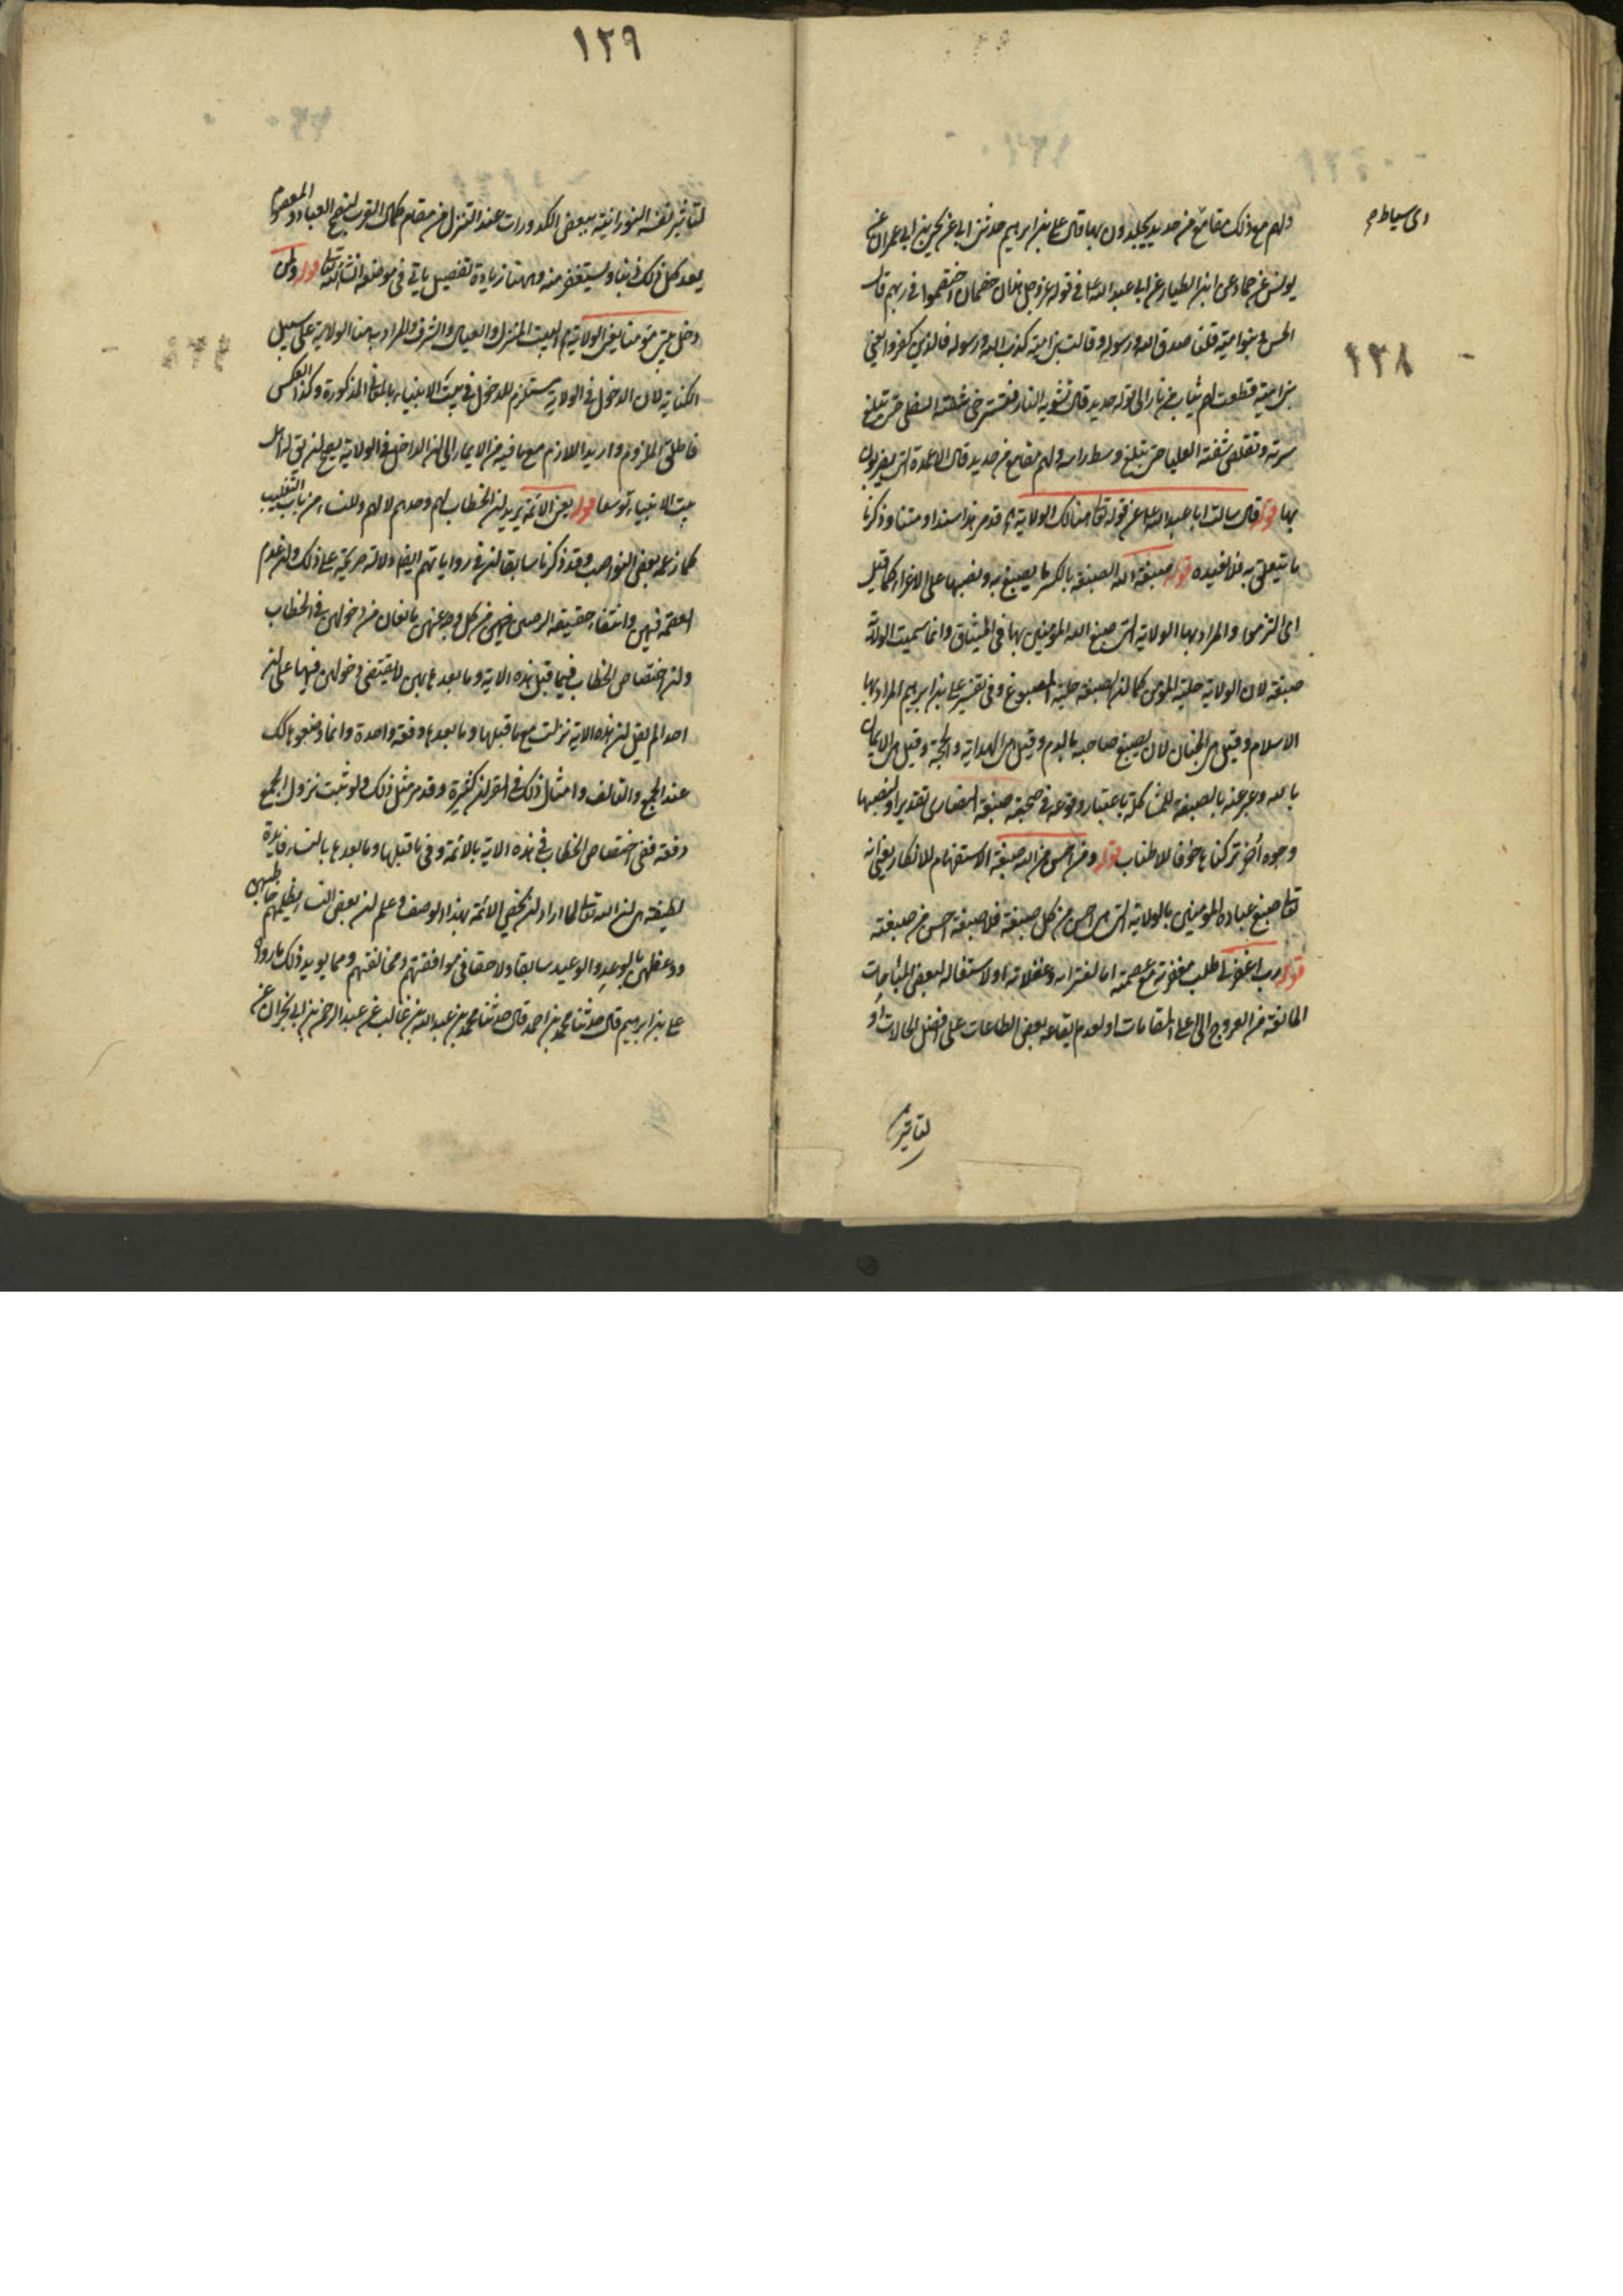 ولهم مع ذلك مقامع من حديد يجلدون بها قال علي بن ابراهيم حدثني ابي عن يحيى بن ابي عمران عن
اى سياط
يونس عن حماد عن ابن الطيار عن ابي عبد الله ع في قوله عز وجل هذان خصمان اختصموا في ربهم قال
نحن وبنوا امية قلنا صدق الله ورسوله وقالت بنو امية كذب الله ورسوله فالذين كفروا يعني
١٢٨
بني امية قطعت لهم ثياب من نار الى قوله حديد قال تشويه النار فتسترخي شفته السفلى حتى تبلغ
سرته وتقلص شفته العليا حتى تبلغ وسط راسه ولهم مقامع من حديد قال الاعمدة التي يضربون
بها قوله قال سالت ابا عبد الله ع عن قوله تعا هنالك الولاية قد مر هذا سندا ومتنا وذكرنا
ما يتعلق به فلا نعيده قوله صبغة الله الصبغة بالكسر ما يصبغ به ونصبها على الاغراء كما قيل
اى الزموا والمراد بها الولاية التي صبغ الله المؤمنين بها في الميثاق وانما سميت الولاية
صبغة لان الولاية حلية المؤمن كما ان الصبغة حلية المصبوغ وفي تفسير علي بن ابراهيم المراد بها
الاسلام وقيل هي الختان لان يصبغ صاحبه بالدم وقيل هي الهداية والحجة وقيل هي الايمان
بالله وعبر عنه بالصبغة للمشاكلة باعتبار وقوعه في صحبة صبغة النصارى تقديرا ولنصبها
وجوه اخر تركناها خوفا للاطناب قوله ومن احسن من الله صبغة الاستفهام للانكار يعني انه
تعا صبغ عباده المؤمنين بالولاية التي هي احسن من كل صبغة فلا صبغة احسن من صبغته
قوله رب اغفر لي طلب مغفرته مع عصمته اما لعثراته وغفلاته او لاستغاله لبعض المباحات
المانعة من العروج الى اعلى المقامات او لعدم ايقاعه بعض الطاعات على افضل الحالات او
لتاثير
١٢٩
لتاثير نفسه النورانية ببعض الكدورات عند التنزل من مقام كمال القرب لنصح العباد والمعصوم
يعد كل ذلك ذنبا ويستغفر منه وههنا زيادة تفصيل ياتي في موضعه انشاء الله تعا قوله ولمن
دخل بيتي مؤمنا يعني الولاية البيت المنزل والعيال والشرف والمراد به هنا الولاية على سبيل
الكناية لان الدخول في الولاية مستلزم للدخول في بيت الانبياء بالمعاني المذكورة وكذا العكس
فاطلق الملزوم واريد اللازم مع ما فيه من الايماء الى ان الداخل في الولاية يصح ان يق له اهل
بيت الانبياء توسعا قوله يعني الائمة يريد ان الخطاب لهم وحدهم لا لهم وللنساء من باب التغليب
كما زعمه بعض النواصب وقد ذكرنا سابقا ان في رواياتهم ايضا دلالة صريحة على ذلك وان عدم
العصمة فيهن وانتفاء حقيقة الرجس فيهن من كل وجه عنهن مانعان من دخولهن في الخطاب
وان اختصاص الخطاب فيما قبل هذه الاية وما بعدها بهن لا يقتضي دخولهن فيها على ان
احدا لم يقل ان هذه الاية نزلت مع ما قبلها وما بعدها دفعة واحدة وانما وضعوها كك
عند الجمع والتاليف وامثال ذلك في القران كثيرة وقد مر مثل ذلك ولو ثبت نزول الجمع
دفعة ففي اختصاص الخطاب في هذه الاية بالائمة وفي ما قبلها وما بعدها بالنساء فايدة
لطيفة هي ان الله تعا لما اراد ان يخص الائمة بهذا الوصف وعلم ان بعض النساء يظلمهم خاطبهن
ووعظهن بالوعد والوعيد سابقا ولاحقا في موافقتهم ومخالفتهم ومما يؤيد ذلك ما رواه
علي بن ابراهيم قال حدثنا محمد بن احمد قال حدثنا محمد بن عبد الله بن غالب عن عبد الرحمن بن ابي نجران عن